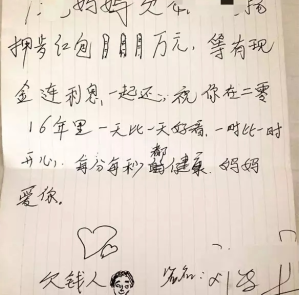 妈妈欠
押岁红包月月月月万元，等有现
金连利息，一起还；祝你在二零
16年里一天比一天好看，一时比一时
开心，每分每秒都健康，妈妈
爱你。
欠钱人